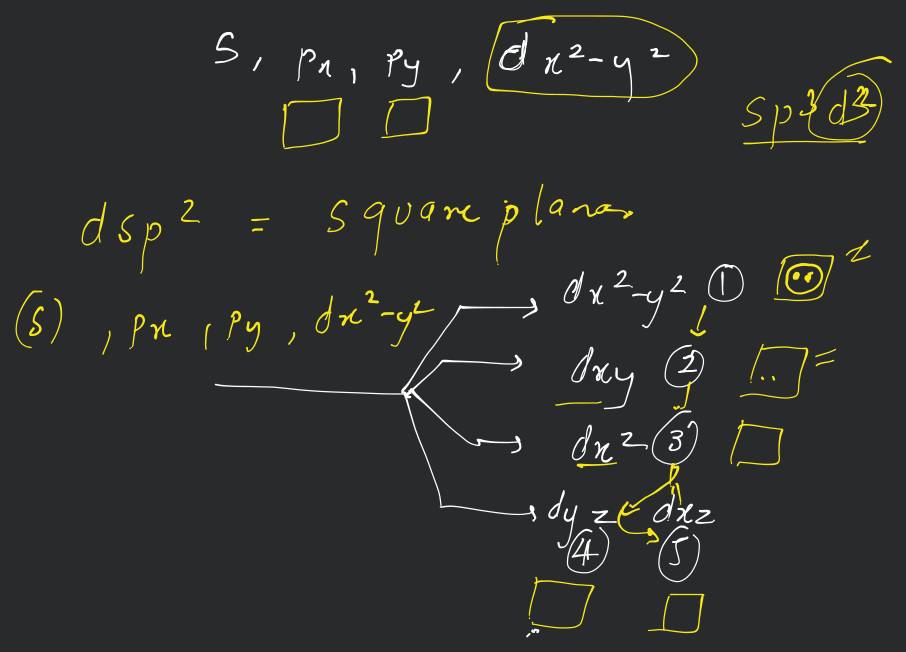 s, px, py, dx²-y²
sp³d²
dsp² = square planar
(s), px, py, dx²-y²
dx²-y² ①
dxy ②
dx² ③
dyz dxz
④ ⑤